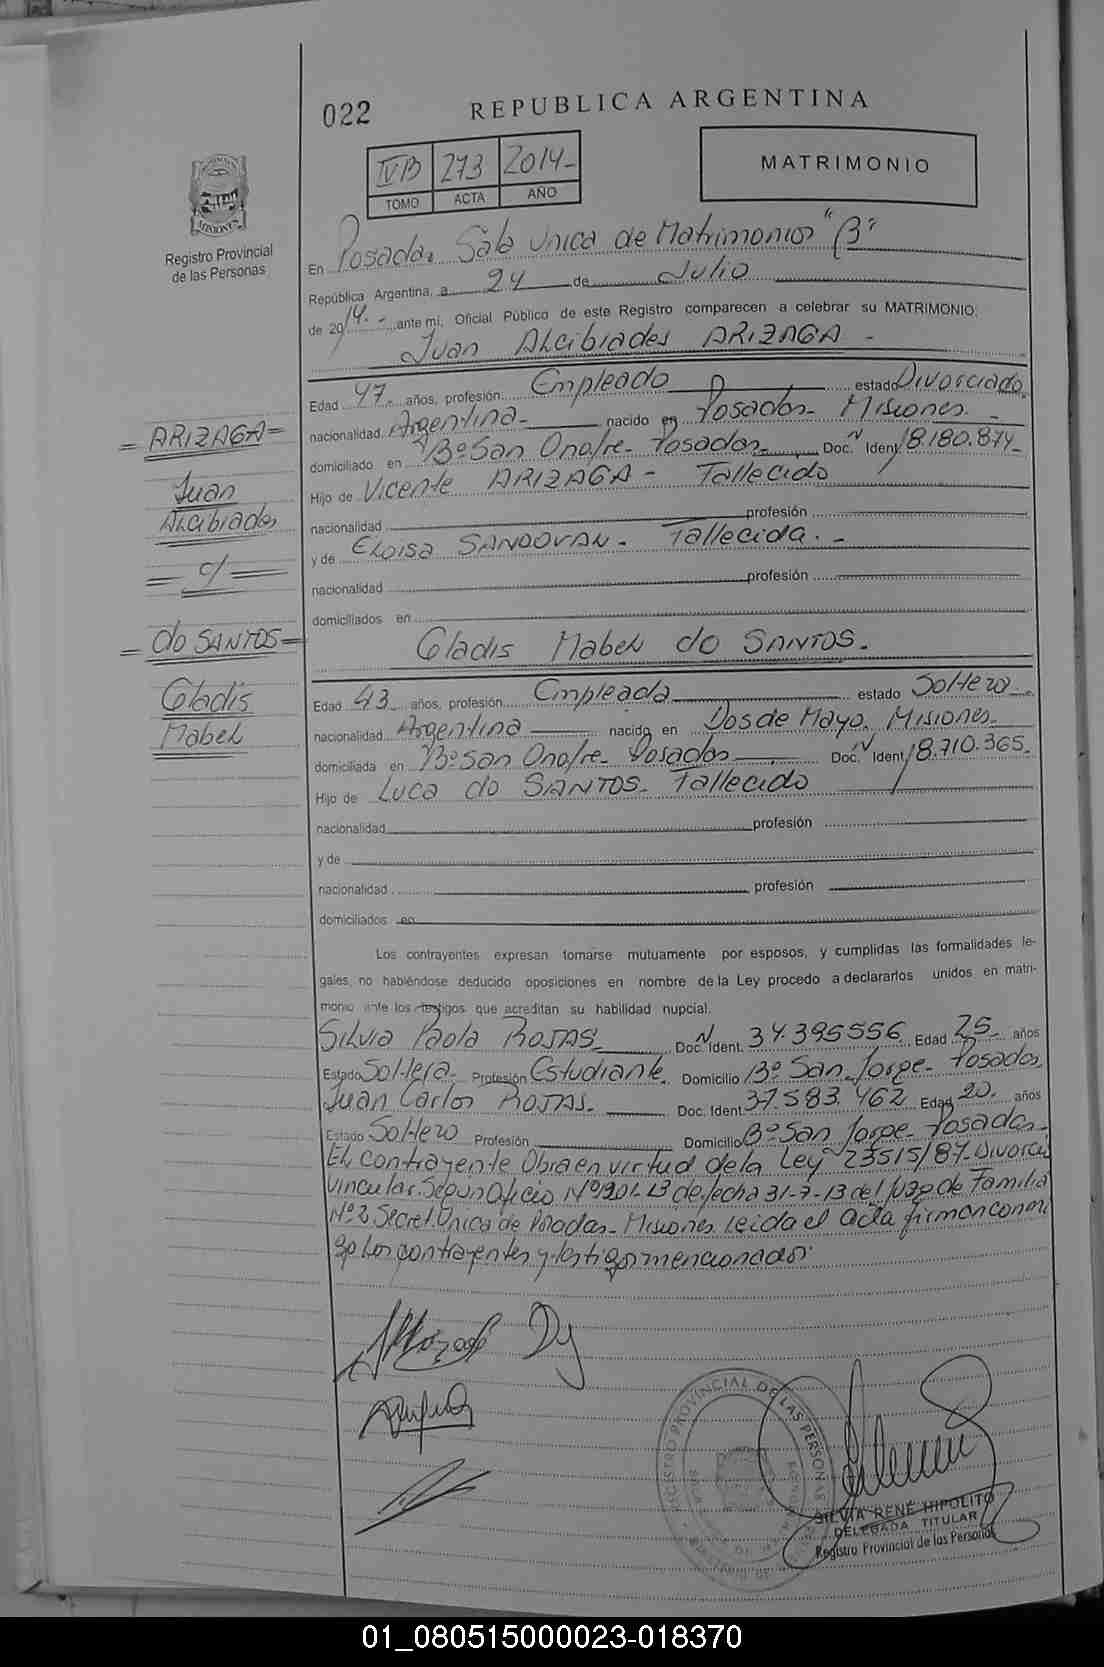 022 REPUBLICA ARGENTINA
IVB 273 2014-
TOMO ACTA AÑO
MATRIMONIO
MISIONES
Registro Provincial
de las Personas
En Posadas Sala Unica de Matrimonios "B"
República Argentina, a 24 de Julio
de 2014.- ante mi, Oficial Público de este Registro comparecen a celebrar su MATRIMONIO:
Juan Alcibiades ARIZAGA -
Edad 47- años, profesión Empleado estado Divorciado
nacionalidad Argentina- nacido en Posadas- Misiones -
domiciliado en Bº San Onofre- Posadas- Doc. N Ident 18.180.874-
Hijo de Vicente ARIZAGA - Fallecido
nacionalidad profesión
y de Eloisa SANDOVAL - Fallecida. -
nacionalidad profesión
domiciliados en
= ARIZAGA =
Juan
Alcibiades
= c/ =
= do SANTOS =
Gladis
Mabel
Gladis Mabel do SANTOS.
Edad 43 años, profesión Empleada estado Soltera
nacionalidad Argentina nacido en Dos de Mayo. Misiones.
domiciliada en Bº San Onofre- Posadas Doc. N Ident 18.710.365.
Hijo de Luca do SANTOS- Fallecido
nacionalidad profesión
y de
nacionalidad profesión
domiciliados en
Los contrayentes expresan tomarse mutuamente por esposos, y cumplidas las formalidades le-
gales, no habiéndose deducido oposiciones en nombre de la Ley procedo a declararlos unidos en matri-
monio ante los testigos que acreditan su habilidad nupcial.
Silvia Paola ROJAS Doc. N Ident. 34.395556 Edad 25- años
Estado Soltera- Profesión Estudiante Domicilio Bº San Jorge- Posadas
Juan Carlos ROJAS. Doc. Ident 37.583.462 Edad 20. años
Estado Soltero Profesión Domicilio Bº San Jorge- Posadas-
El contrayente Obra en virtud de la Ley 23515/87- Divorcio
Vincular. Según Oficio Nº 1901-13 de fecha 31-7-13 del Juzg de Familia
Nº 2 Secret. Unica de Posadas- Misiones leida el acta firman conmi
go los contrayentes y testigos mencionados.
REGISTRO PROVINCIAL DE LAS PERSONAS
SILVIA RENÉ HIPOLITO
DELEGADA TITULAR
Registro Provincial de las Personas
01_080515000023-018370